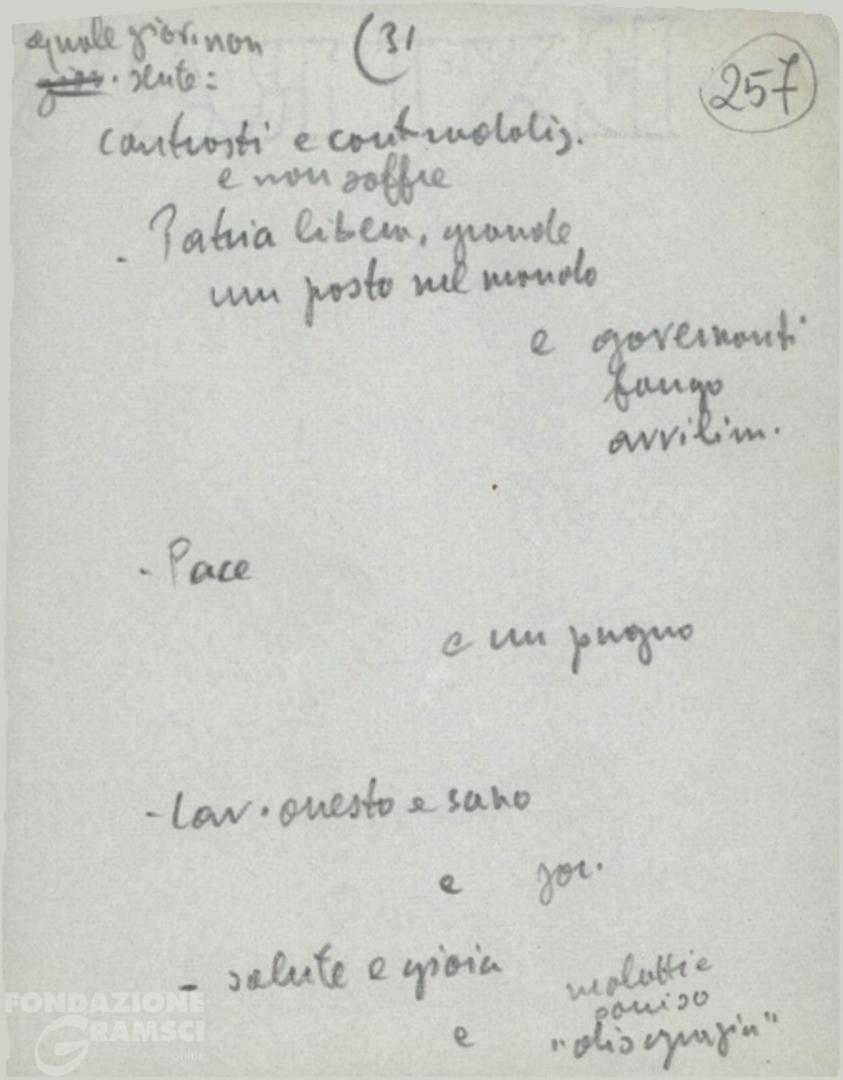 quale giov. non
(31
257
giov. sente:
contrasti e contraddiz.
e non soffre
- Patria libera, grande
un posto nel mondo
e governanti
fango
avvilim.
- Pace
e un pugno
- lav. onesto e sano
e
- salute e gioia
malattie
e "disgrazia"
FONDAZIONE
GRAMSCI
onlus